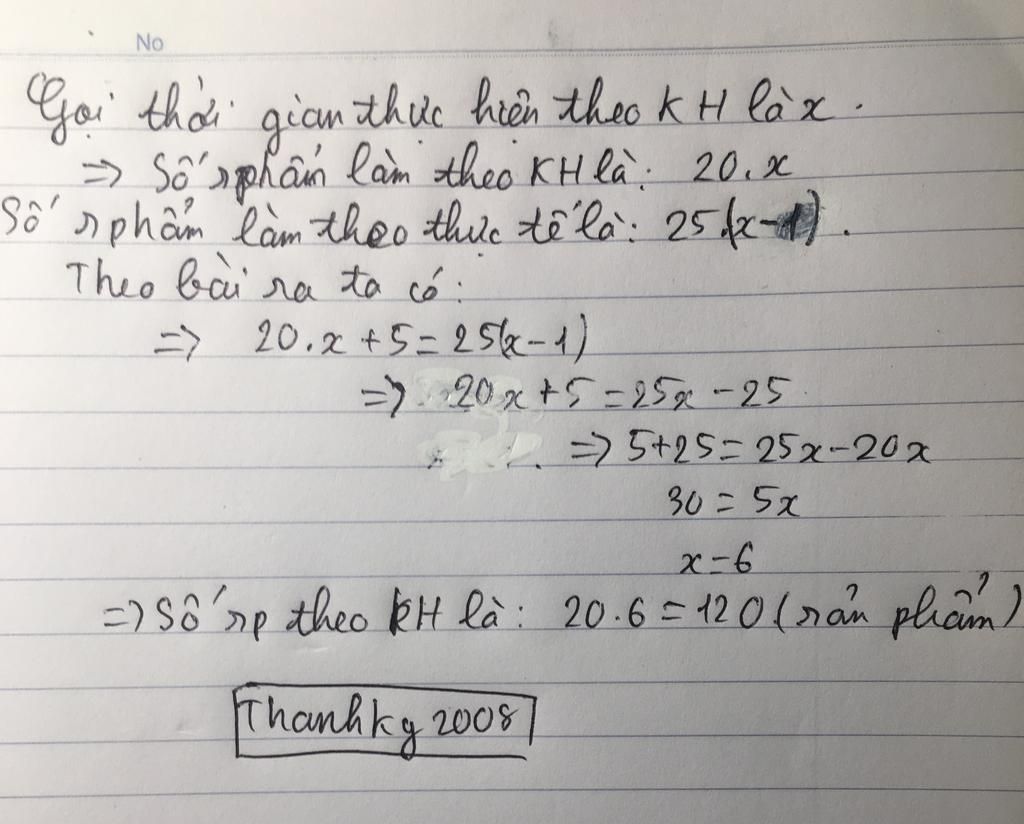 No
Gọi thời gian thực hiện theo KH là x.
=> Số sphẩm làm theo KH là: 20.x
Số sphẩm làm theo thực tế là: 25.(x-1).
Theo bài ra ta có:
=> 20.x+5=25(x-1)
=> 20x+5=25x-25
=> 5+25=25x-20x
30=5x
x=6
=> Số sp theo KH là: 20.6=120 (sản phẩm)
Thanhkg 2008